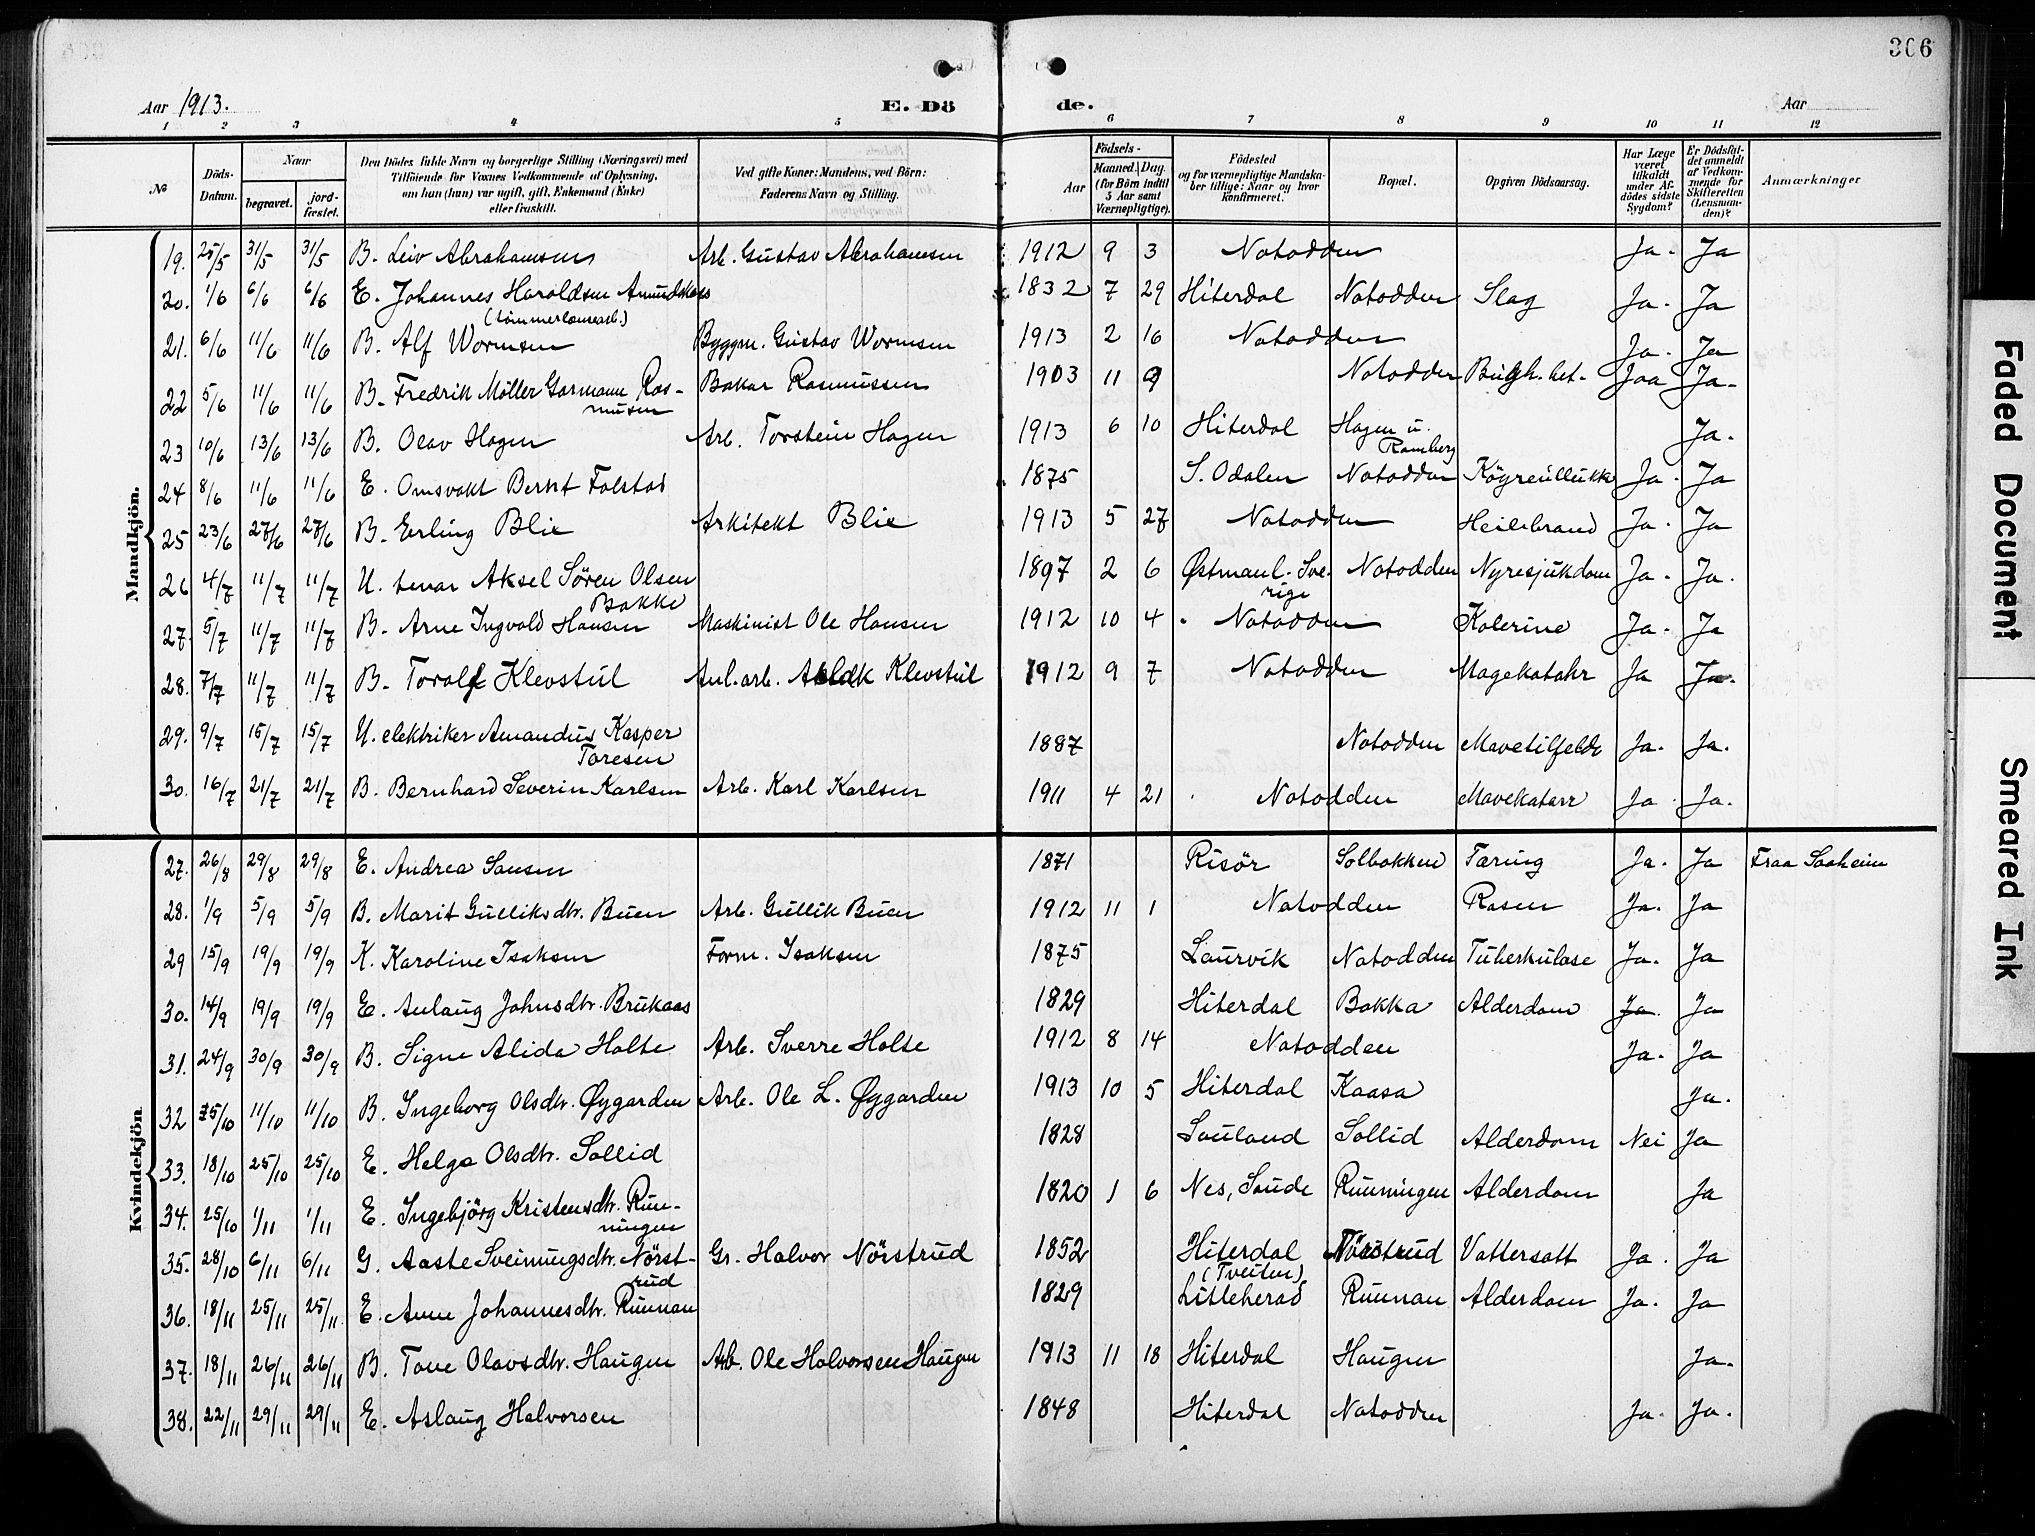 306
Aar 1913.
E. Dö de.
Aar
1 2 3 4 5 6 7 8 9 10 11 12
№
Döds-Datum.
Naar
begravet.
jord-fæstet.
Den Dödes fulde Navn og borgerlige Stilling (Næringsvei) med
Tilföiende for Voxnes Vedkommende af Oplysning,
om han (hun) var ugift, gift, Enkemand (Enke)
eller fraskilt.
Ved gifte Koner: Mandens, ved Börn:
Faderens Navn og Stilling.
Födsels-
Aar
Maaned. Dag.
(for Börn indtil
5 Aar samt
Værnepligtige).
Födested
og for værnepligtige Mandska-
ber tillige: Naar og hvor
konfirmeret.
Bopæl.
Opgiven Dödsaarsag.
Har Læge
været
tilkaldt
under Af-
dödes sidste
Sygdom?
Er Dödsfal-
det anmeldt
af Vedkom-
mende for
Skifteretten
(Lensman-
den)?
Anmærkninger
Mandkjön.
19. 25/5 31/5 31/5 B. Leiv Abrahamsen Arb. Gustav Abrahamsen 1912 9 3 Notodden Ja. Ja
20. 1/6 6/6 6/6 E. Johannes Haroldsen Amundskaas 1832 7 29 Hiterdal Notodden Slag Ja. Ja
21. 6/6 11/6 11/6 B. Alf Wormsen Byggm. Gustav Wormsen 1913 2 16 Notodden Ja. Ja
22 5/6 11/6 11/6 B. Fredrik Möller Garmann Ras- Bakar Rasmussen 1903 11 9 Notodden Bugh. bet. Jaa Ja.
musen
23 10/6 13/6 13/6 B. Olav Hagen Arb. Torstein Hagen 1913 6 10 Hiterdal Hagen u. Ja.
Ramberg
24 8/6 11/6 11/6 E. Omsvakt Bernt Folstad 1875 S. Odalen Notodden Ja. Ja
25 23/6 27/6 27/6 B. Erling Blie Arkitekt Blie 1913 5 27 Notodden Ja. Ja
26 4/7 11/7 11/7 U. Aksel Sören Olsen 1897 2 6 Østmarl. Sve- Notodden Nyresjukdom Ja. Ja.
Bakke rige
27. 5/7 11/7 11/7 B. Arne Ingvald Hansen Maskinist Ole Hansen 1912 10 4 Notodden Kolerine Ja. Ja
28. 7/7 11/7 11/7 B. Toralf Klevstul Anl.arb. Klevstul 1912 9 7 Notodden Magekatahr Ja Ja.
29. 9/7 15/7 15/7 U. elektriker Amandus Kasper 1887 Notodden Mavetilfelde Ja. Ja.
Toresen
30. 16/7 21/7 21/7 B. Bernhard Severin Karlsen Arb. Karl Karlsen 1911 4 21 Notodden Mavekatarr Ja Ja.
Kvindekjön.
27. 26/8 29/8 29/8 E. Andrea Sansen 1871 Risör Solbakken Tæring Ja. Ja Fraa Saaheim
28. 1/9 5/9 5/9 B. Marit Gulliksdtr. Buen Arb. Gullik Buen 1912 11 1 Notodden Rosen Ja. Ja
29 15/9 19/9 19/9 K. Karoline Isaksen Form. Isaksen 1875 Laurvik Notodden Tuberkulose Ja. Ja
30. 14/9 19/9 19/9 E. Anlaug Johnsdtr. Brukaas 1829 Hiterdal Bakka Alderdom Ja. Ja
31. 24/9 30/9 30/9 B. Signe Alida Holte Arb. Sverre Holte 1912 8 14 Notodden Ja. Ja
32 5/10 11/10 11/10 B. Ingeborg Olsdtr. Øygarden Arb. Ole L. Øygarden 1913 10 5 Hiterdal Kaasa Ja.
33. 18/10 25/10 25/10 E. Helga Olsdtr. Sollid 1828 Sauland Sollid Alderdom Nei Ja
34. 25/10 1/11 1/11 E. Ingebjörg Kristensdtr. Run- 1820 1 6 Nes, Saude Runningen Alderdom Ja
ningen
35. 28/10 6/11 6/11 G. Aaste Sveinungsdtr. Nörst- Gr. Halvor Nörstrud 1852 Hiterdal Nörstrud Vattersott Ja. Ja
rud (Tveiten)
36. 18/11 25/11 25/11 E. Anne Johannesdtr. Runnan 1829 Litleherad Runnan Alderdom Ja. Ja
37. 18/11 26/11 26/11 B. Tone Olavsdtr. Haugen Arb. Ole Halvorsen Haugen 1913 11 18 Hiterdal Haugen Ja.
38. 22/11 29/11 29/11 E. Aslaug Halvorsen 1848 Hiterdal Notodden Ja. Ja.
Faded Document
Smeared Ink